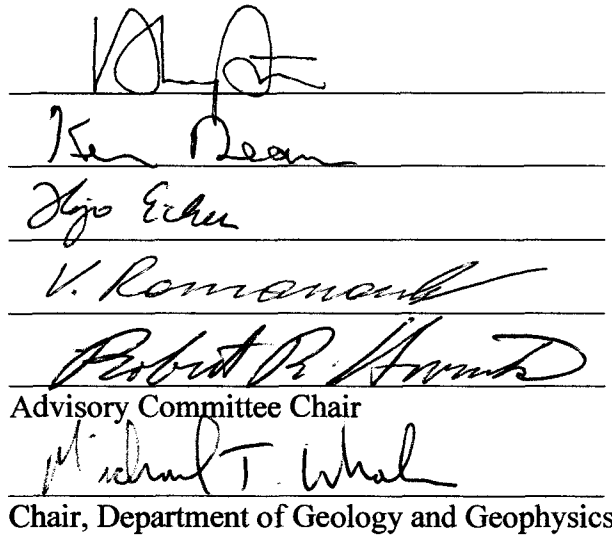 Ken Dean
Hajo Eicken
V. Romanovsky
Robert R. 
Advisory Committee Chair
Michael T. Whalen
Chair, Department of Geology and Geophysics